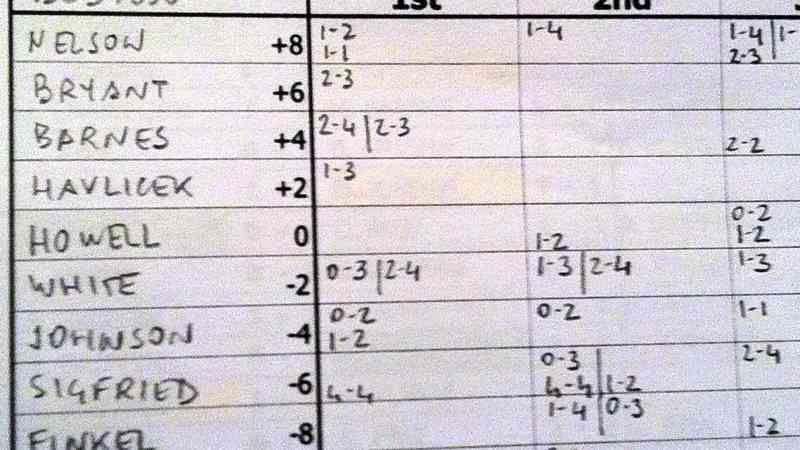 1st 2nd
NELSON +8 1-2 1-4 1-4 | 1-
1-1 2-3
BRYANT +6 2-3
BARNES +4 2-4 | 2-3 2-2
HAVLICEK +2 1-3
0-2
HOWELL 0 1-2 1-2
WHITE -2 0-3 | 2-4 1-3 | 2-4 1-3
JOHNSON -4 0-2 0-2 1-1
1-2
0-3 | 2-4
SIGFRIED -6 4-4 4-4 | 1-2
1-4 | 0-3
FINKEL -8 1-2